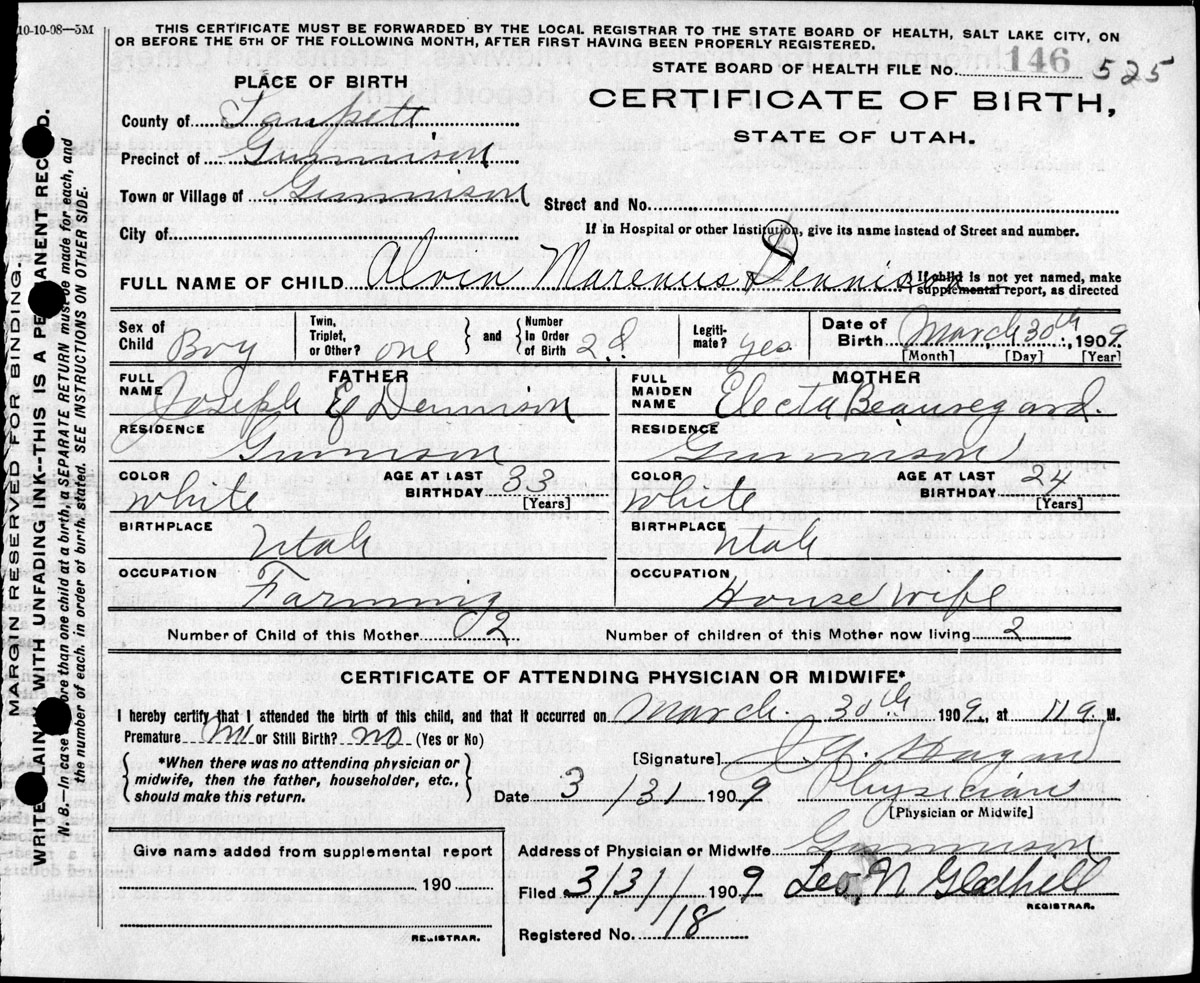 10-10-08—5M
THIS CERTIFICATE MUST BE FORWARDED BY THE LOCAL REGISTRAR TO THE STATE BOARD OF HEALTH, SALT LAKE CITY, ON
OR BEFORE THE 5TH OF THE FOLLOWING MONTH, AFTER FIRST HAVING BEEN PROPERLY REGISTERED.
STATE BOARD OF HEALTH FILE No. 146 525
CERTIFICATE OF BIRTH,
STATE OF UTAH.
PLACE OF BIRTH
County of Sanpete
Precinct of Gunnison
Town or Village of Gunnison
City of
Street and No.
If in Hospital or other Institution, give its name instead of Street and number.
FULL NAME OF CHILD Alvin Marenus Dennison
If child is not yet named, make
supplemental report, as directed
Sex of Child Boy
Twin, Triplet, or Other? one
and
Number in Order of Birth 2d
Legitimate? yes
Date of Birth March 30th, 1909
[Month] [Day] [Year]
FATHER
FULL NAME Joseph E Dennison
RESIDENCE Gunnison
COLOR White
AGE AT LAST BIRTHDAY 33 [Years]
BIRTHPLACE Utah
OCCUPATION Farming
MOTHER
FULL MAIDEN NAME Electa Beauregard.
RESIDENCE Gunnison
COLOR White
AGE AT LAST BIRTHDAY 24 [Years]
BIRTHPLACE Utah
OCCUPATION House wife
Number of Child of this Mother 02
Number of children of this Mother now living 2
CERTIFICATE OF ATTENDING PHYSICIAN OR MIDWIFE*
I hereby certify that I attended the birth of this child, and that it occurred on March 30th 1909, at 11 a. M.
Premature or Still Birth? no (Yes or No)
*When there was no attending physician or
midwife, then the father, householder, etc.,
should make this return.
[Signature] Hagan
Date 3/31 1909 Physician
[Physician or Midwife]
Address of Physician or Midwife Gunnison
Filed 3/31 1909 Leo N Gledhill
REGISTRAR.
Registered No. 18
Give name added from supplemental report
190
REGISTRAR.
MARGIN RESERVED FOR BINDING.
WRITE PLAINLY WITH UNFADING INK---THIS IS A PERMANENT RECORD.
N. B.—In case of more than one child at a birth, a SEPARATE RETURN must be made for each, and
the number of each, in order of birth, stated. SEE INSTRUCTIONS ON OTHER SIDE.